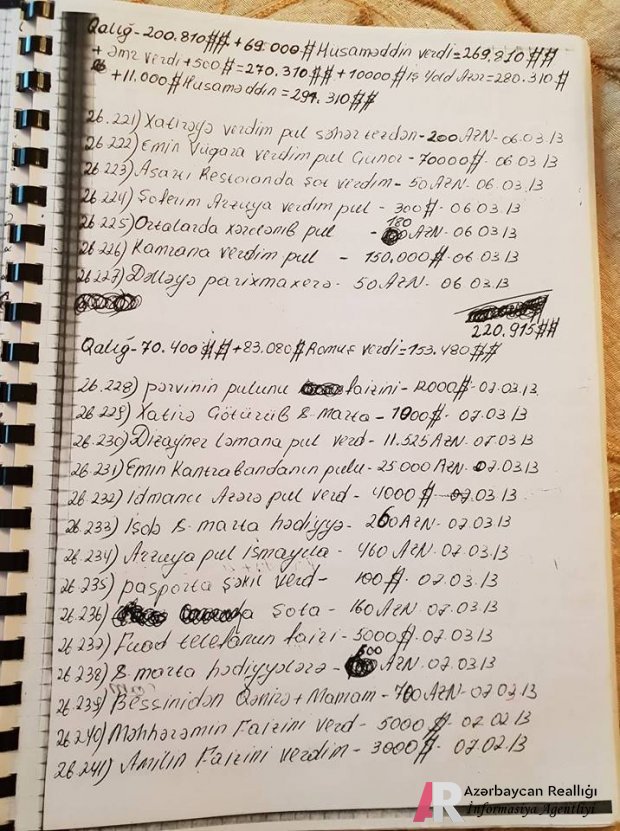 Qalığ-200.810## +69.000# Husaməddin verdi=269.810##
+ əmr verdi+500#=270.310## +10000# iş Yold Azər=280.310#
+11.000# Husaməddin=291.310##
26.221) Xatirəyə verdim pul səhər tezdən-200 AZN-06.03.13
26.222) Emin Vüqara verdim pul Günor-70000$-06.03.13
26.223) Asari Restoranda Şot verdim-50 AZN 06.03.13
26.224) Şoferim Arzuya verdim pul - 300$-06.03.13
26.225) Ortalarda xərclənib pul - 180 AZN. 06.03.13
26.226) Kamrana verdim pul - 150,000$-06.03.13
26.227) parixmaxerə- 50 AZN. 06.03.13
220.915##
Qalığ-70.400## +83.080# Ramuz verdi=153.480##
26.228) pərvinin pulunu faizini-12000$-07.03.13
26.229) Xatirə Götürüb 8-marta-1000$-07.03.13
26.230) Dizayner Ləmana pul verd-11.525 AZN-07.03.13
26.231) Emin Kantrabandanın pulu-25000 AZN-07.03.13
26.232) İdmançı Azərə pul verd - 4000$-07.03.13
26.233) İşçb 8-marta hədiyyə-260 AZN-07.03.13
26.234) Arzuya pul ismayıla - 460 AZN-07.03.13
26.235) pasporta şəkil verd- 100$-07.03.13
26.236) şota - 160 AZN. 07.03.13
26.237) Fuad telefonun faizi-5000$-07.03.13
26.238) 8-marta hədiyyələrə - 500 AZN. 07.03.13
26.239) Bessinidən Qənirə+Mamam-700 AZN-07.02.13
26.240) Məhhərəmin Faizini verd- 5000$-07.02.13
26.241) Amilin Faizini verdim - 3000$-07.02.13
AR Azərbaycan Reallığı
İnformasiya Agentliyi